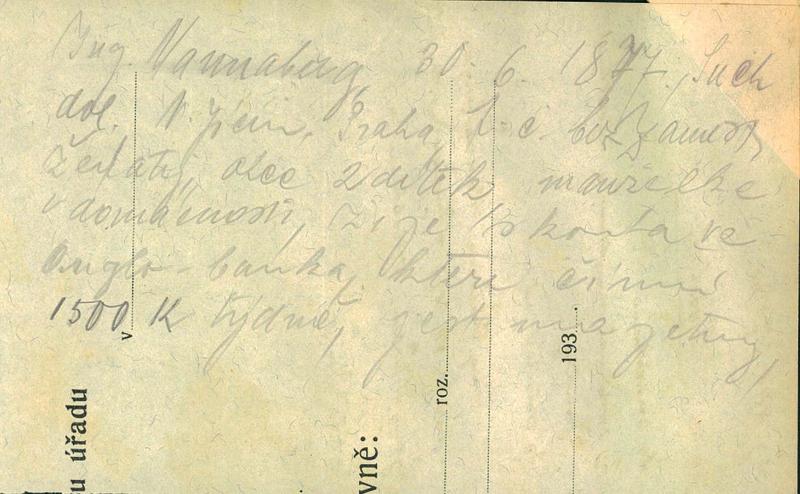 Ing. Vannaberg 30. 6. 1877., Such
dol. Praha, t. č. bez zaměst,
Ženatý, otec 2 dítek manželka
v domácnosti, žije z konta ve
Anglo-banka, které činní
1500 K týdně, jest majetný,
v
roz.
193
u úřadu
vně: